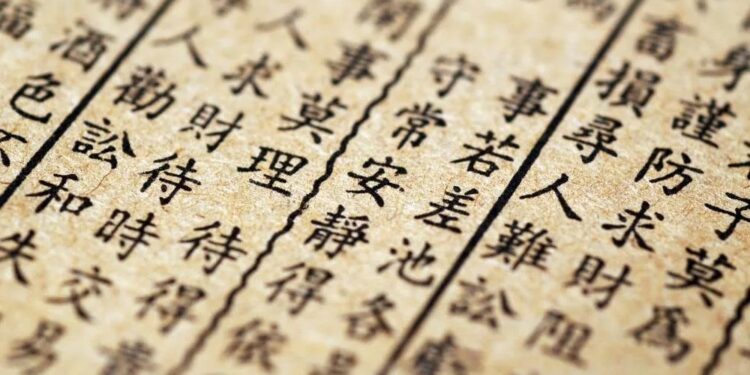 子莫為
謹防求財阻
畜損尋人難訟
事若差池各
守常安靜得依
事莫理待得
人求財待時交易
人勸訟和失
酒色不